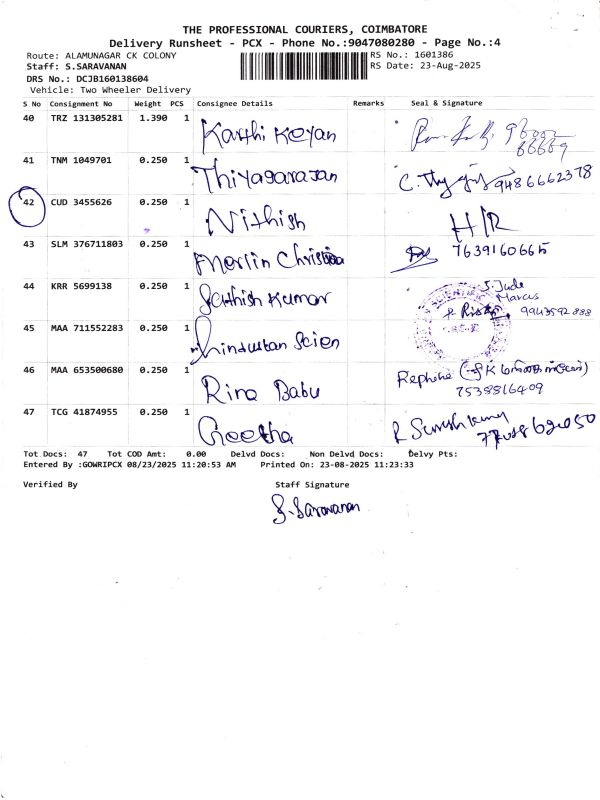 THE PROFESSIONAL COURIERS, COIMBATORE
Delivery Runsheet - PCX - Phone No.:9047080280 - Page No.:4
Route: ALAMUNAGAR CK COLONY RS No.: 1601386
Staff: S.SARAVANAN RS Date: 23-Aug-2025
DRS No.: DCJB160138604
Vehicle: Two Wheeler Delivery
S No Consignment No Weight PCS Consignee Details Remarks Seal & Signature
40 TRZ 131305281 1.390 1 Karthi Keyan
41 TNM 1049701 0.250 1 Thiyagarajan 9486662378
42 CUD 3455626 0.250 1 Nithish H/R
43 SLM 376711803 0.250 1 Merlin Christina 7639160665
44 KRR 5699138 0.250 1 Sathish Kumar S. Jude
Marcus
9943592888
45 MAA 711552283 0.250 1 hindustan Scien
46 MAA 653500680 0.250 1 Rina Babu
7538816409
47 TCG 41874955 0.250 1 Geetha
Tot.Docs: 47 Tot COD Amt: 0.00 Delvd Docs: Non Delvd Docs: Delvy Pts:
Entered By :GOWRIPCX 08/23/2025 11:20:53 AM Printed On: 23-08-2025 11:23:33
Verified By Staff Signature
S. Saravanan